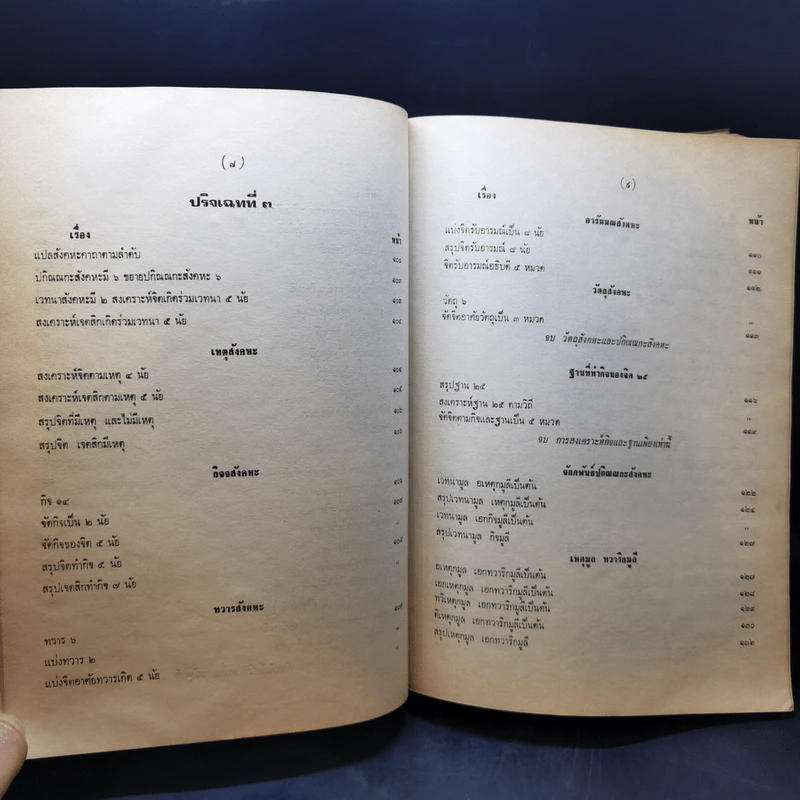 (๘)
ปริจเฉทที่ ๓
เรื่อง หน้า
แปลสังคหะคาถาตามลำดับ ๑๐๐
ปกิณณกะสังคหะมี ๖ ขยายปกิณณกะสังคหะ ๖
เวทนาสังคหะมี ๒ สงเคราะห์จิตเกิดร่วมเวทนา ๕ นัย
สงเคราะห์เจตสิกเกิดร่วมเวทนา ๕ นัย
เหตุสังคหะ
สงเคราะห์จิตตามเหตุ ๔ นัย
สงเคราะห์เจตสิกตามเหตุ ๕ นัย
สรุปจิตที่มีเหตุ และไม่มีเหตุ
สรุปจิต เจตสิกมีเหตุ
กิจจสังคหะ
กิจ ๑๔
จัดกิจเป็น ๒ นัย "
จัดกิจของจิต ๕ นัย
สรุปจิตทำกิจ ๕ นัย "
สรุปเจตสิกทำกิจ ๗ นัย
ทวารสังคหะ
ทวาร ๖
แบ่งทวาร ๒ "
แบ่งจิตอาศัยทวารเกิด ๕ นัย "
(๙)
เรื่อง หน้า
อารัมมณสังคหะ
แบ่งจิตรับอารมณ์เป็น ๘ นัย ๑๑๐
สรุปจิตรับอารมณ์ ๘ นัย ๑๑๑
จิตรับอารมณ์อธิบดี ๕ หมวด ๑๑๒
วัตถุสังคหะ
วัตถุ ๖ "
จัดจิตอาศัยวัตถุเป็น ๓ หมวด ๑๑๓
จบ วัตถุสังคหะและปกิณณกะสังคหะ
ฐานที่ทำกิจของจิต ๒๕
สรุปฐาน ๒๕ ๑๑๖
สงเคราะห์ฐาน ๒๕ ตามวิถี "
จัดจิตตามกิจและฐานเป็น ๕ หมวด ๑๑๙
จบ การสงเคราะห์กิจและฐานเพียงเท่านี้
จักกพันธ์ปกิณณกะสังคหะ
เวทนามูล อเหตุกมูลีเป็นต้น ๑๒๒
สรุปเวทนามูล เหตุกมูลีเป็นต้น ๑๒๔
เวทนามูล เอกกิจมูลีเป็นต้น "
สรุปเวทนามูล กิจมูลี ๑๒๗
เหตุมูล ทวาริกมูลี
อเหตุกมูล เอกทวาริกมูลีเป็นต้น ๑๒๗
เอกเหตุกมูล เอกทวาริกมูลีเป็นต้น ๑๒๘
ทวิเหตุกมูล เอกทวาริกมูลีเป็นต้น ๑๒๙
ติเหตุกมูล เอกทวาริกมูลีเป็นต้น ๑๓๐
สรุปเหตุกมูล เอกทวาริกมูลี ๑๓๒